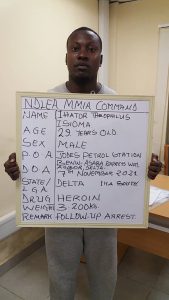 NDLEA MMIA COMMAND
NAME IHATOR THEOPHILUS
ISIOMA
AGE 29 YEARS OLD
SEX MALE
P.O.A JONES PETROL STATION
BENIN ASABA EXPRESS WAY
ASABA, DELTA
D.O.A 7TH NOVEMBER 2021
STATE/ DELTA IKA SOUTH
LGA
DRUG HEROIN
WEIGHT 3.200KG
REMARK FOLLOW-UP ARREST